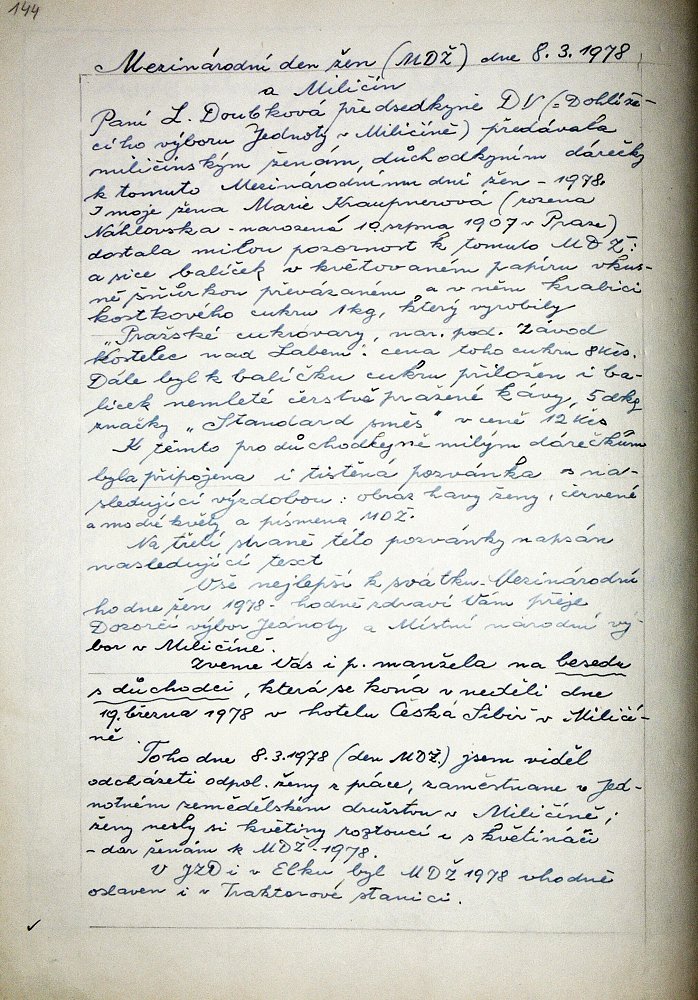 144
Mezinárodní den žen (MDŽ) dne 8.3.1978
a Miličín
Paní L. Doubková předsedkyně DV (= Dohlíže-
cího výboru Jednoty v Miličíně) předávala
miličínským ženám, důchodkyním dárečky
k tomuto Mezinárodnímu dni žen - 1978.
I moje žena Marie Kraupnerová (rozená
Náhlovská - narozená 10. srpna 1907 v Praze)
dostala milou pozornost k tomuto MDŽ:
a sice balíček v květovaném papíru vkus-
ně šňůrkou převázaném a v něm krabici
kostkového cukru 1kg, který vyrobily
„Pražské cukrovary, nar. pod. Závod
Kostelec nad Labem: cena toho cukru 8 Kčs.
Dále byl k balíčku cukru přiložen i ba-
líček nemleté čerstvě pražené kávy, 5 dkg
značky „Standard směs" v ceně 12 Kčs
K těmto pro důchodkyně milým dárečkům
byla připojena i tištěná pozvánka s ná-
sledující výzdobou: obraz hlavy ženy, červené
a modré květy a písmena MDŽ.
Na třetí straně této pozvánky napsán
následující text
Vše nejlepší k svátku - Mezinárodní
ho dne žen 1978 - hodně zdraví Vám přeje
Dozorčí výbor Jednoty a Místní národní vý-
bor v Miličíně.
Zveme Vás i p. manžela na besedu
s důchodci, která se koná v neděli dne
19. března 1978 v hotelu Česká Sibiř v Miličí-
ně
Toho dne 8.3.1978 (den MDŽ) jsem viděl
odcházeti odpol. ženy z práce, zaměstnane v Jed-
notném zemědělském družstvu v Miličíně;
ženy nesly si květiny rostoucí i s květináči
- dar ženám k MDŽ - 1978.
V JZD i v Elku byl MDŽ 1978 vhodně
oslaven i v Traktorové stanici.